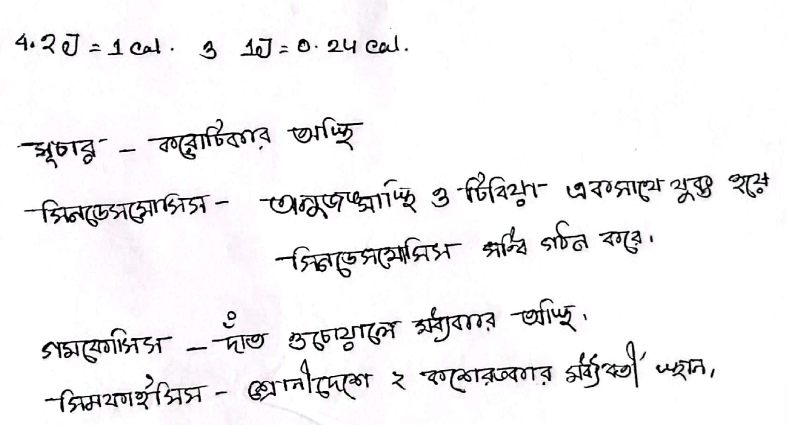 4.2 J = 1 cal. ও 1J = 0.24 cal.
সূচার - করোটিকার অস্থি
সিনডেসমোসিস - অনুজঙ্ঘাস্থি ও টিবিয়া একসাথে যুক্ত হয়ে
সিনডেসমোসিস সন্ধি গঠন করে।
গমফোসিস - দাঁত ও চোয়ালে মধ্যকার অস্থি।
সিমফাইসিস - শ্রোণীদেশে ২ কশেরুকার মধ্যবর্তী স্থান।